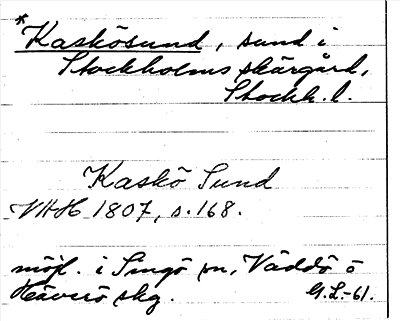 *Kaskösund, sund i
Stockholms skärgård,
Stockh. l.
Kaskö Sund
VHH 1807, s. 168.
möjl. i Singö sn, Väddö o
Häverö skg.
G.L.-61.